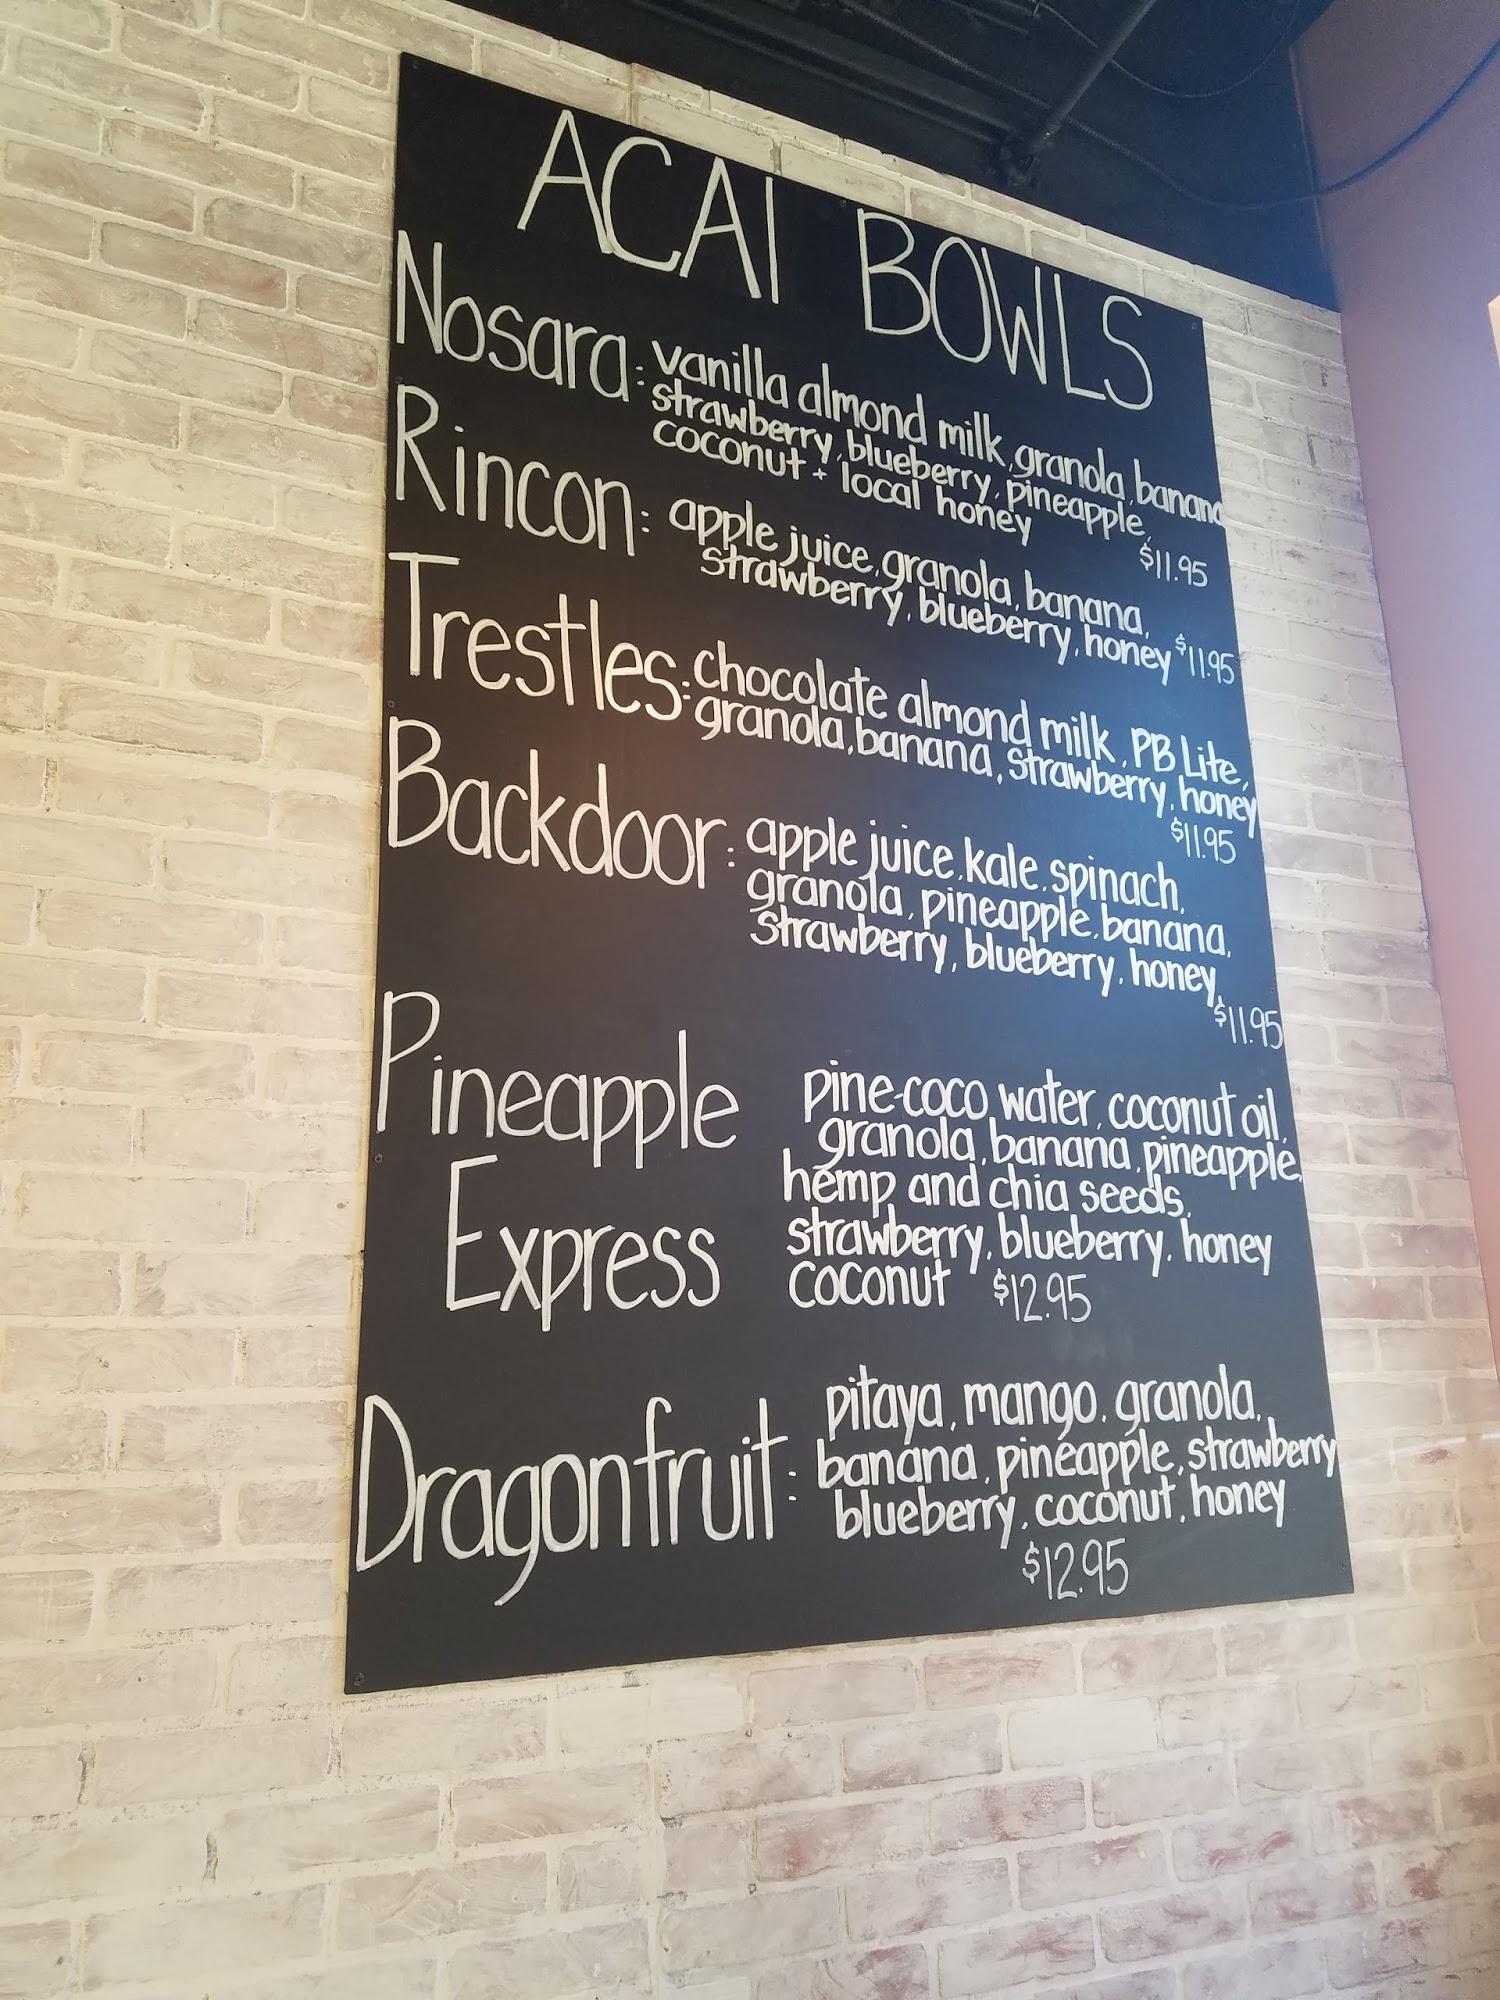 ACAI BOWLS
Nosara: vanilla almond milk, granola, banana
strawberry, blueberry, pineapple,
coconut + local honey
$11.95
Rincon: apple juice, granola, banana,
strawberry, blueberry, honey $11.95
Trestles: chocolate almond milk, PB Lite,
granola, banana, strawberry, honey
$11.95
Backdoor: apple juice, kale, spinach,
granola, pineapple, banana,
strawberry, blueberry, honey,
$11.95
Pineapple pine-coco water, coconut oil,
granola, banana, pineapple,
Express hemp and chia seeds,
strawberry, blueberry, honey
coconut $12.95
Dragonfruit: pitaya, mango, granola,
banana, pineapple, strawberry
blueberry, coconut, honey
$12.95